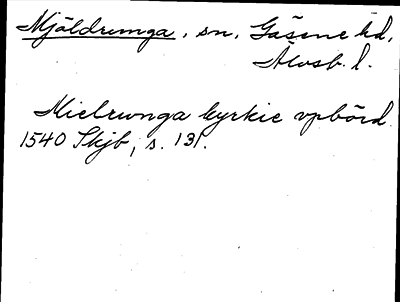 Mjäldrunga, sn, Gäsene hd,
Älvsb. l.
Mielrunga kyrkie vpbörd
1540 Skjb, s. 131.